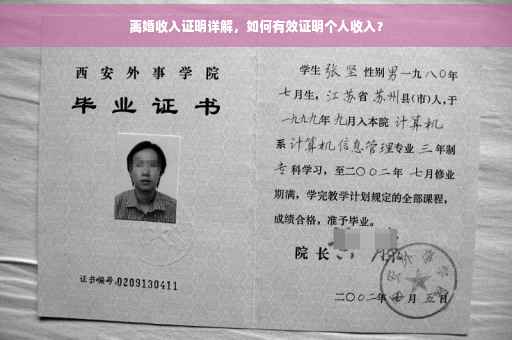 离婚收入证明详解，如何有效证明个人收入？
西安外事学院
毕业证书
证书编号:0209130411
学生 张坚 性别 男 一九八〇年
七月生，江苏省 苏州县(市)人，于
一九九九年九月入本院 计算机
系 计算机信息管理专业 三 年制
专科学习，至二〇〇二年 七月修业
期满，学完教学计划规定的全部课程，
成绩合格，准予毕业。
院长
二〇〇二年 月五日